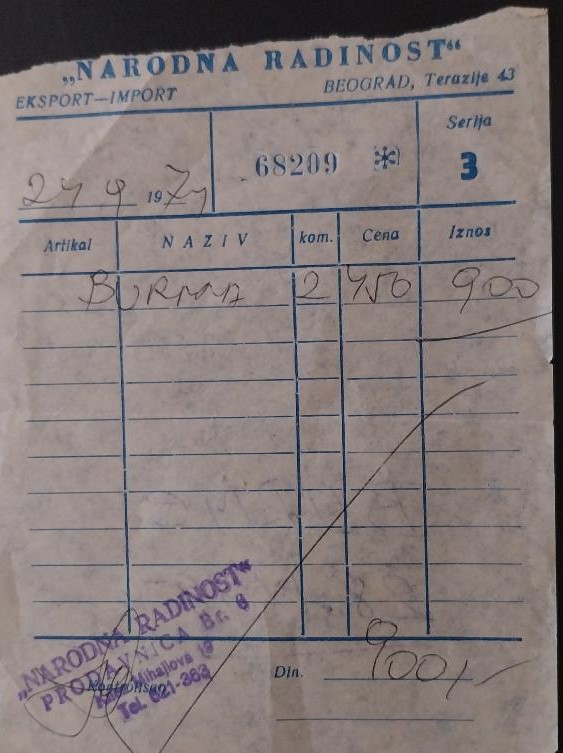 „NARODNA RADINOST“
EKSPORT—IMPORT BEOGRAD, Terazije 43
24 9 1974 68209 Serija 3
Artikal NAZIV kom. Cena Iznos
BURMA 2 450 900
„NARODNA RADINOST“
PRODAVNICA Br. 6
Knez Mihajlova 19
Tel. 621-363
Kontrolisao
Din. 900,-